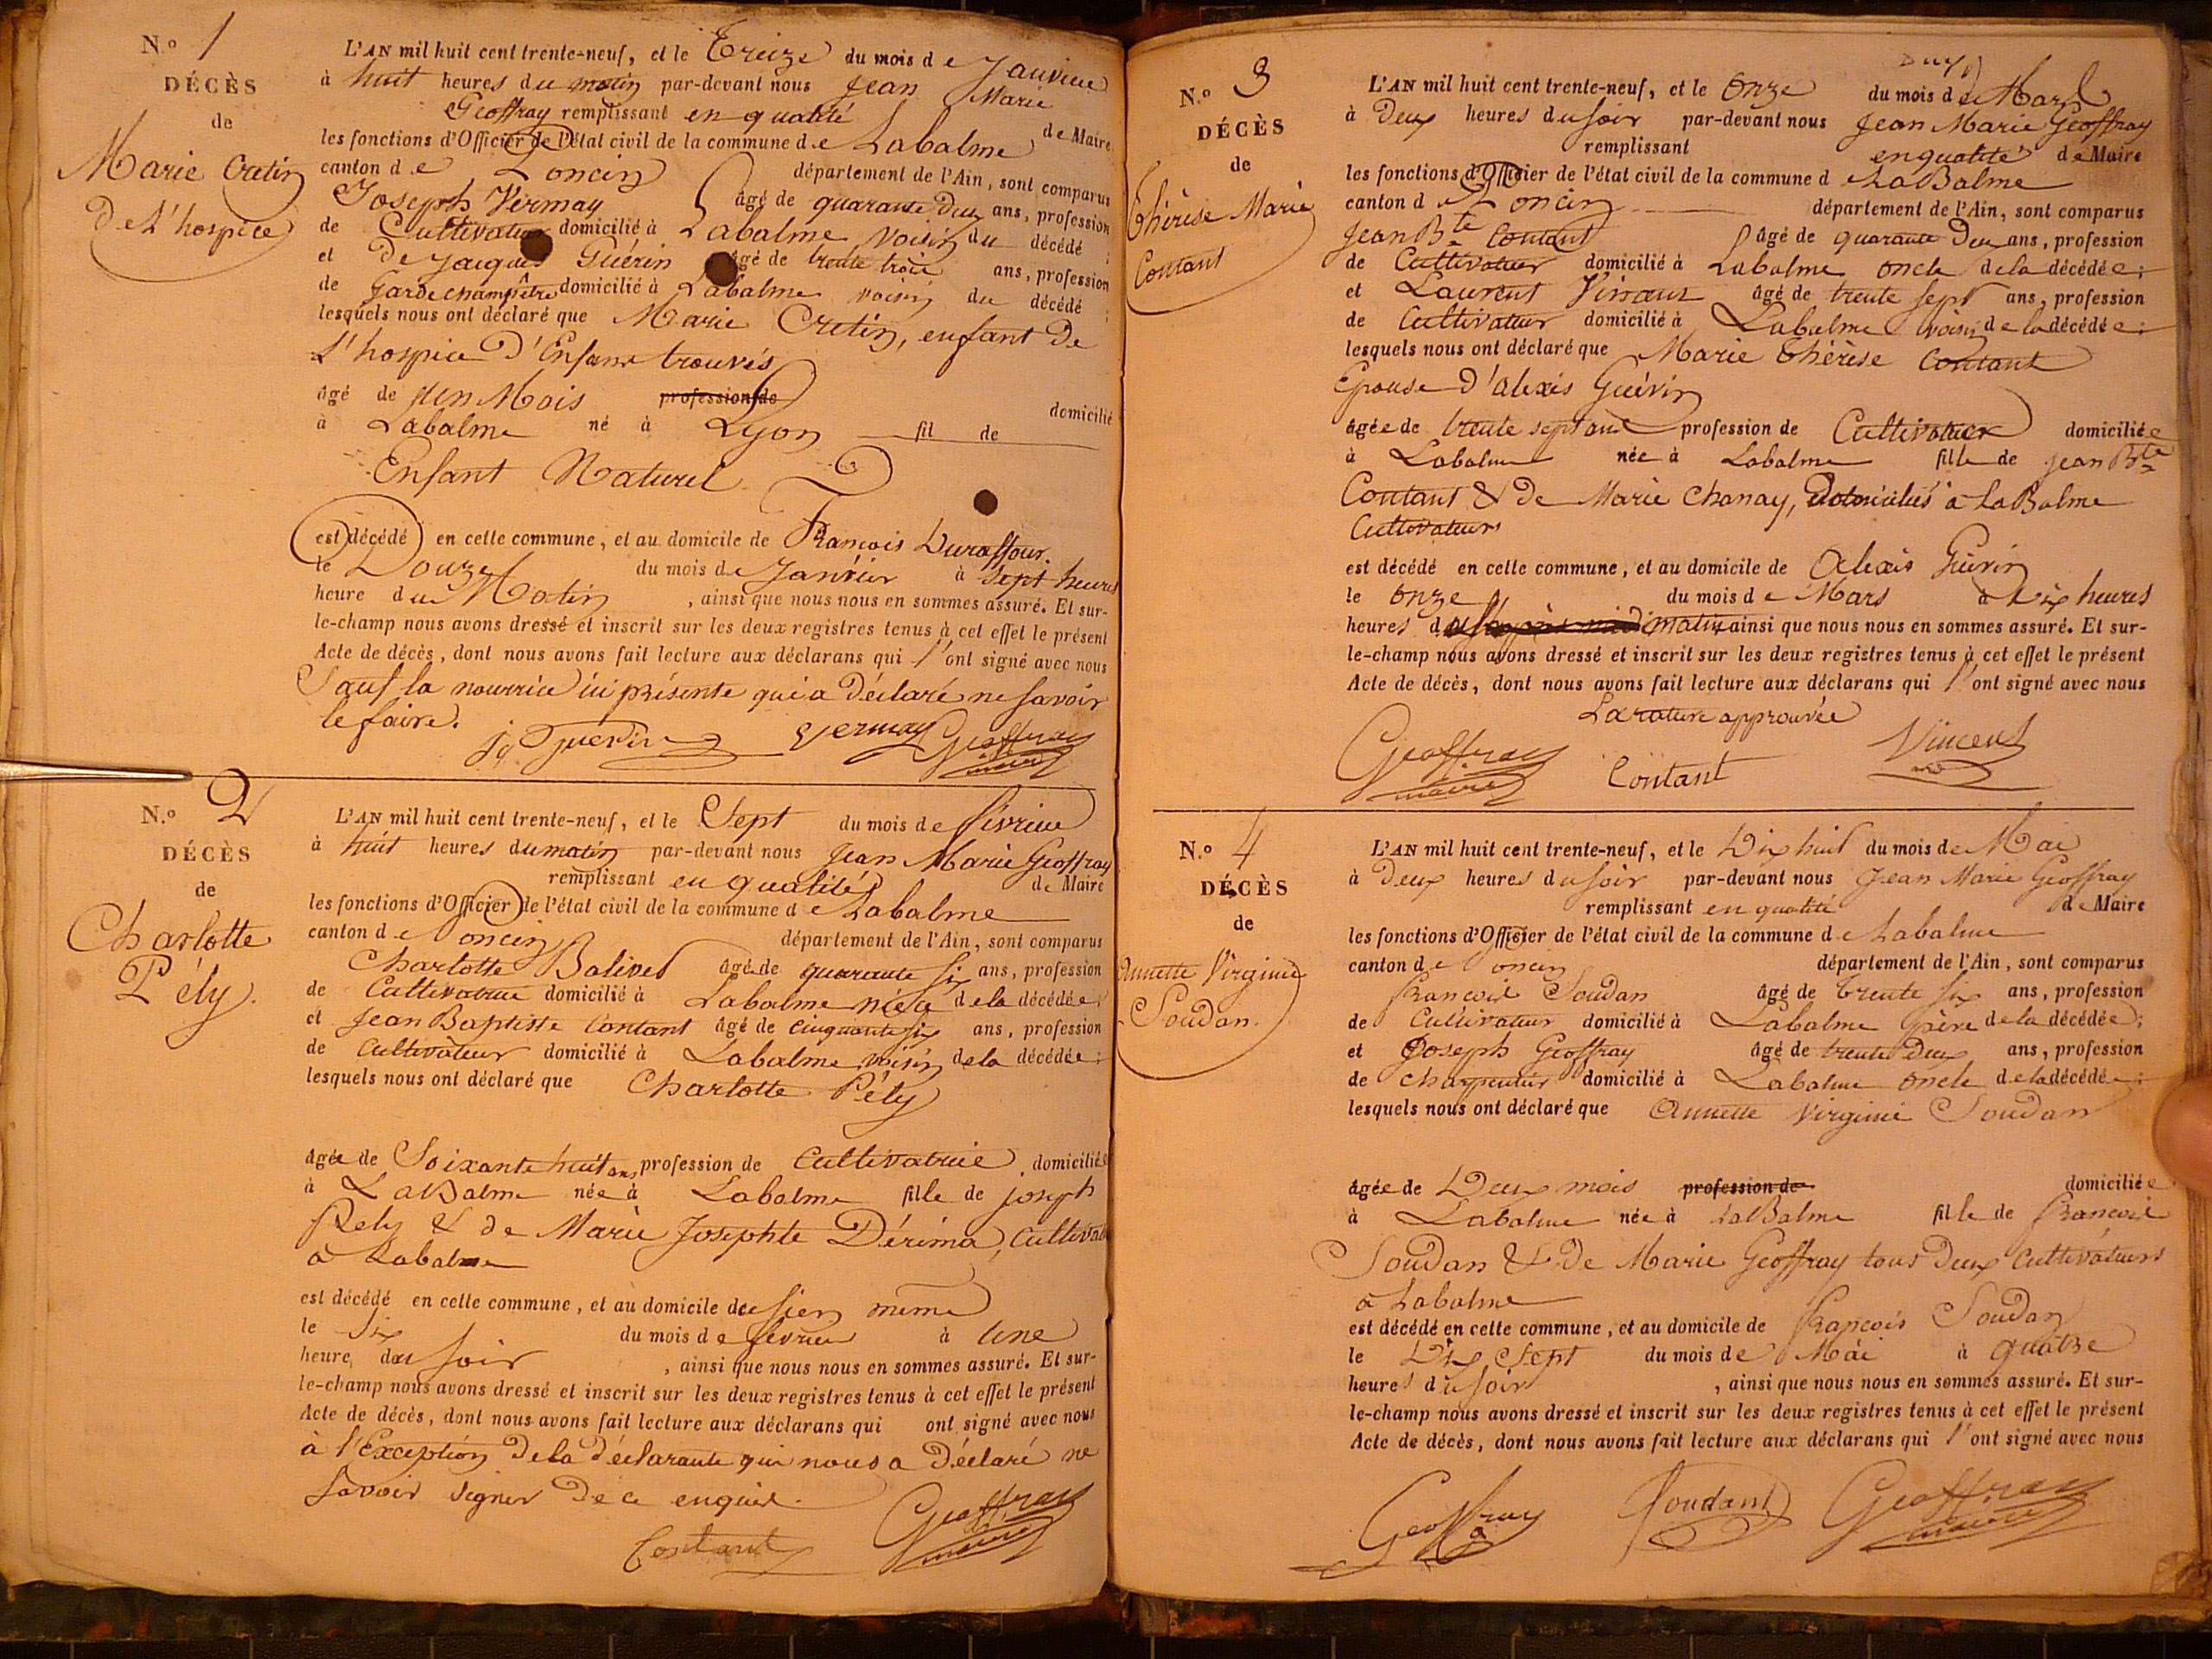 N.º 1
DÉCÈS
de
Marie Cretin
De L'hospice
L'AN mil huit cent trente-neuf, et le Treize du mois de Janvier
à huit heures du matin par-devant nous Jean Marie
Geoffray remplissant en qualité de Maire
les fonctions d'Officier de l'état civil de la commune de Labalme
canton de Poncin département de l'Ain, sont comparus
Joseph Vermay âgé de quarante Deux ans, profession
de Cultivateur domicilié à Labalme voisin du décédé ;
et De Jacques Guérin âgé de trente trois ans, profession
de Garde champêtre domicilié à Labalme voisin du décédé ;
lesquels nous ont déclaré que Marie Cretin, enfant De
L'hospice D'Enfans trouvés
âgé de Un Mois profession de domicilié
à Labalme né à Lyon fil de
Enfant Naturel
est décédé en cette commune, et au domicile de François Duraffour.
le Douze du mois de Janvier à Sept heures
heure du Matin, ainsi que nous nous en sommes assuré. Et sur-
le-champ nous avons dressé et inscrit sur les deux registres tenus à cet effet le présent
Acte de décès, dont nous avons fait lecture aux déclarans qui l'ont signé avec nous
Sauf la nourrice ici présente qui a Déclaré ne savoir
le faire.
Jq Guerin Vermay Geoffray
maire
N.º 2
DÉCÈS
de
Charlotte
Pély.
L'AN mil huit cent trente-neuf, et le Sept du mois de février
à huit heures du matin par-devant nous Jean Marie Geoffray
remplissant en qualité de Maire
les fonctions d'Officier de l'état civil de la commune de Labalme
canton de Poncin département de l'Ain, sont comparus
Charlotte Balivet âgé de quarante six ans, profession
de Cultivatrice domicilié à Labalme nièce de la décédée ;
et Jean Baptiste Contant âgé de cinquante six ans, profession
de Cultivateur domicilié à Labalme voisin de la décédée ;
lesquels nous ont déclaré que Charlotte Pély
âgée de Soixante huit ans profession de Cultivatrice domiciliée
à LaBalme née à Labalme fille de joseph
Pely & de Marie Josephte Dérima, Cultivat
à Labalme
est décédé en cette commune, et au domicile de sien même
le Six du mois de février à Une
heure du soir, ainsi que nous nous en sommes assuré. Et sur-
le-champ nous avons dressé et inscrit sur les deux registres tenus à cet effet le présent
Acte de décès, dont nous avons fait lecture aux déclarans qui ont signé avec nous
à l'Exception De la déclarante qui nous a Déclaré ne
Savoir signer De ce enquise.
Contant Geoffray
maire
N.º 3
DÉCÈS
de
Thérèse Marie
Contant
L'AN mil huit cent trente-neuf, et le Onze du mois de Mars
à Deux heures du soir par-devant nous Jean Marie Geoffray
remplissant en qualité de Maire
les fonctions d'Officier de l'état civil de la commune de LaBalme
canton de Poncin département de l'Ain, sont comparus
Jean Bte Contant âgé de quarante Deux ans, profession
de Cultivateur domicilié à Labalme oncle de la décédée ;
et Laurent Vincent âgé de trente sept ans, profession
de Cultivateur domicilié à Labalme voisin de la décédée ;
lesquels nous ont déclaré que Marie Thérèse Contant
Epouse D'alexis Guérin
âgée de trente sept ans profession de Cultivateur domiciliée
à Labalme née à Labalme fille de jean Bte
Contant & De Marie Chanay, Domiciliés à LaBalme
Cultivateurs
est décédé en cette commune, et au domicile de Alexis Guérin
le onze du mois de Mars à Dix heures
heures du matin ainsi que nous nous en sommes assuré. Et sur-
le-champ nous avons dressé et inscrit sur les deux registres tenus à cet effet le présent
Acte de décès, dont nous avons fait lecture aux déclarans qui l'ont signé avec nous
La rature approuvée
Geoffray Contant Vincent
maire
N.º 4
DÉCÈS
de
Annette Virginie
Soudan.
L'AN mil huit cent trente-neuf, et le Dix huit du mois de Mai
à Deux heures du soir par-devant nous Jean Marie Geoffray
remplissant en qualité de Maire
les fonctions d'Officier de l'état civil de la commune de Labalme
canton de Poncin département de l'Ain, sont comparus
françois Soudan âgé de trente six ans, profession
de Cultivateur domicilié à Labalme père de la décédée ;
et Joseph Geoffray âgé de trente Deux ans, profession
de charpentier domicilié à Labalme oncle de la décédée ;
lesquels nous ont déclaré que Annette Virginie Soudan
âgée de Deux mois profession de domiciliée
à Labalme née à LaBalme fille de françois
Soudan & De Marie Geoffray tous Deux Cultivateurs
à Labalme
est décédé en cette commune, et au domicile de françois Soudan
le Dix Sept du mois de Mai à quatre
heures du soir, ainsi que nous nous en sommes assuré. Et sur-
le-champ nous avons dressé et inscrit sur les deux registres tenus à cet effet le présent
Acte de décès, dont nous avons fait lecture aux déclarans qui l'ont signé avec nous
Geoffray Soudant Geoffray
maire